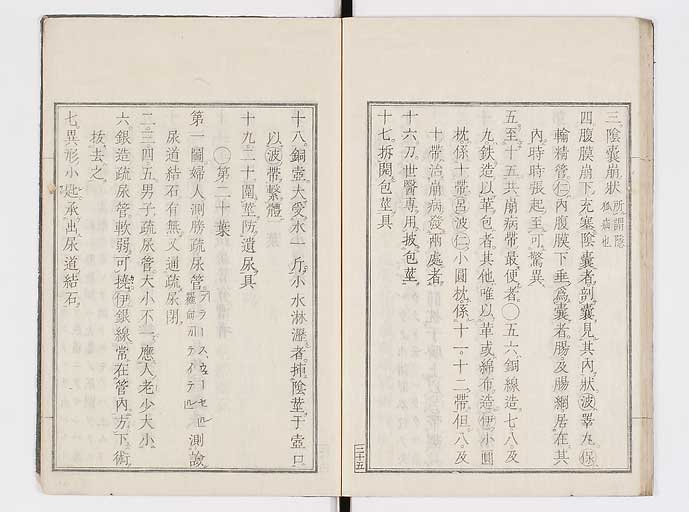 三陰囊崩狀 所謂陰狐病也
四腹膜崩下充塞陰囊者剖囊見其內狀波睪丸保
輸精管仁內腹膜下垂爲囊者腸及腸網居在其
內時時張起至可驚異
五至十五共崩病帶最便者○五六銅線造七八及
九鉄造以革包者其他唯以革或綿布造伊小圓
枕係十帶呂波仁小圓枕係十一十二帶但八及
十帶治崩病發兩處者
十六刀世醫專用披包莖
十七拆開包莖具
三十五
十八銅壺大受水一斤小水淋瀝者挿陰莖于壺口
以波帶繫體
十九二十圍莖防遺尿具
○第二十葉
第一圖婦人測勝疏尿管 測驗
尿道結石有無又通疏尿閉
二三四五男子疏尿管大小不一應人老少大小
六銀造疏尿管軟弱可撓伊銀線常在管內方下術
拔去之
七異形小匙承出尿道結石